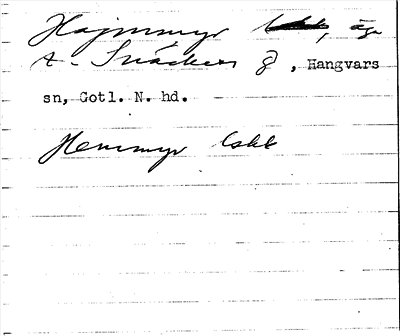 Hajmmyr, äga
t. Snäckers g, Hangvars
sn, Gotl. N. hd.
Hemmyr